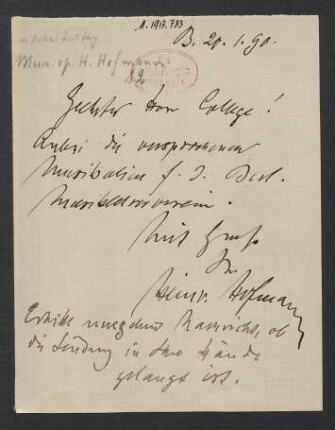 A. 1917. 733
B. 20. 1. 90.
Mus. op. H. Hofmann
Geehrter Herr College!
Anbei die versprochenen
Musikalien f. d. Berl.
Musiklehrerverein.
Mit Gruß
Ihr
Heinr. Hofmann
Erbitte umgehend Nachricht, ob
die Sendung in Ihre Hände
gelangt ist.